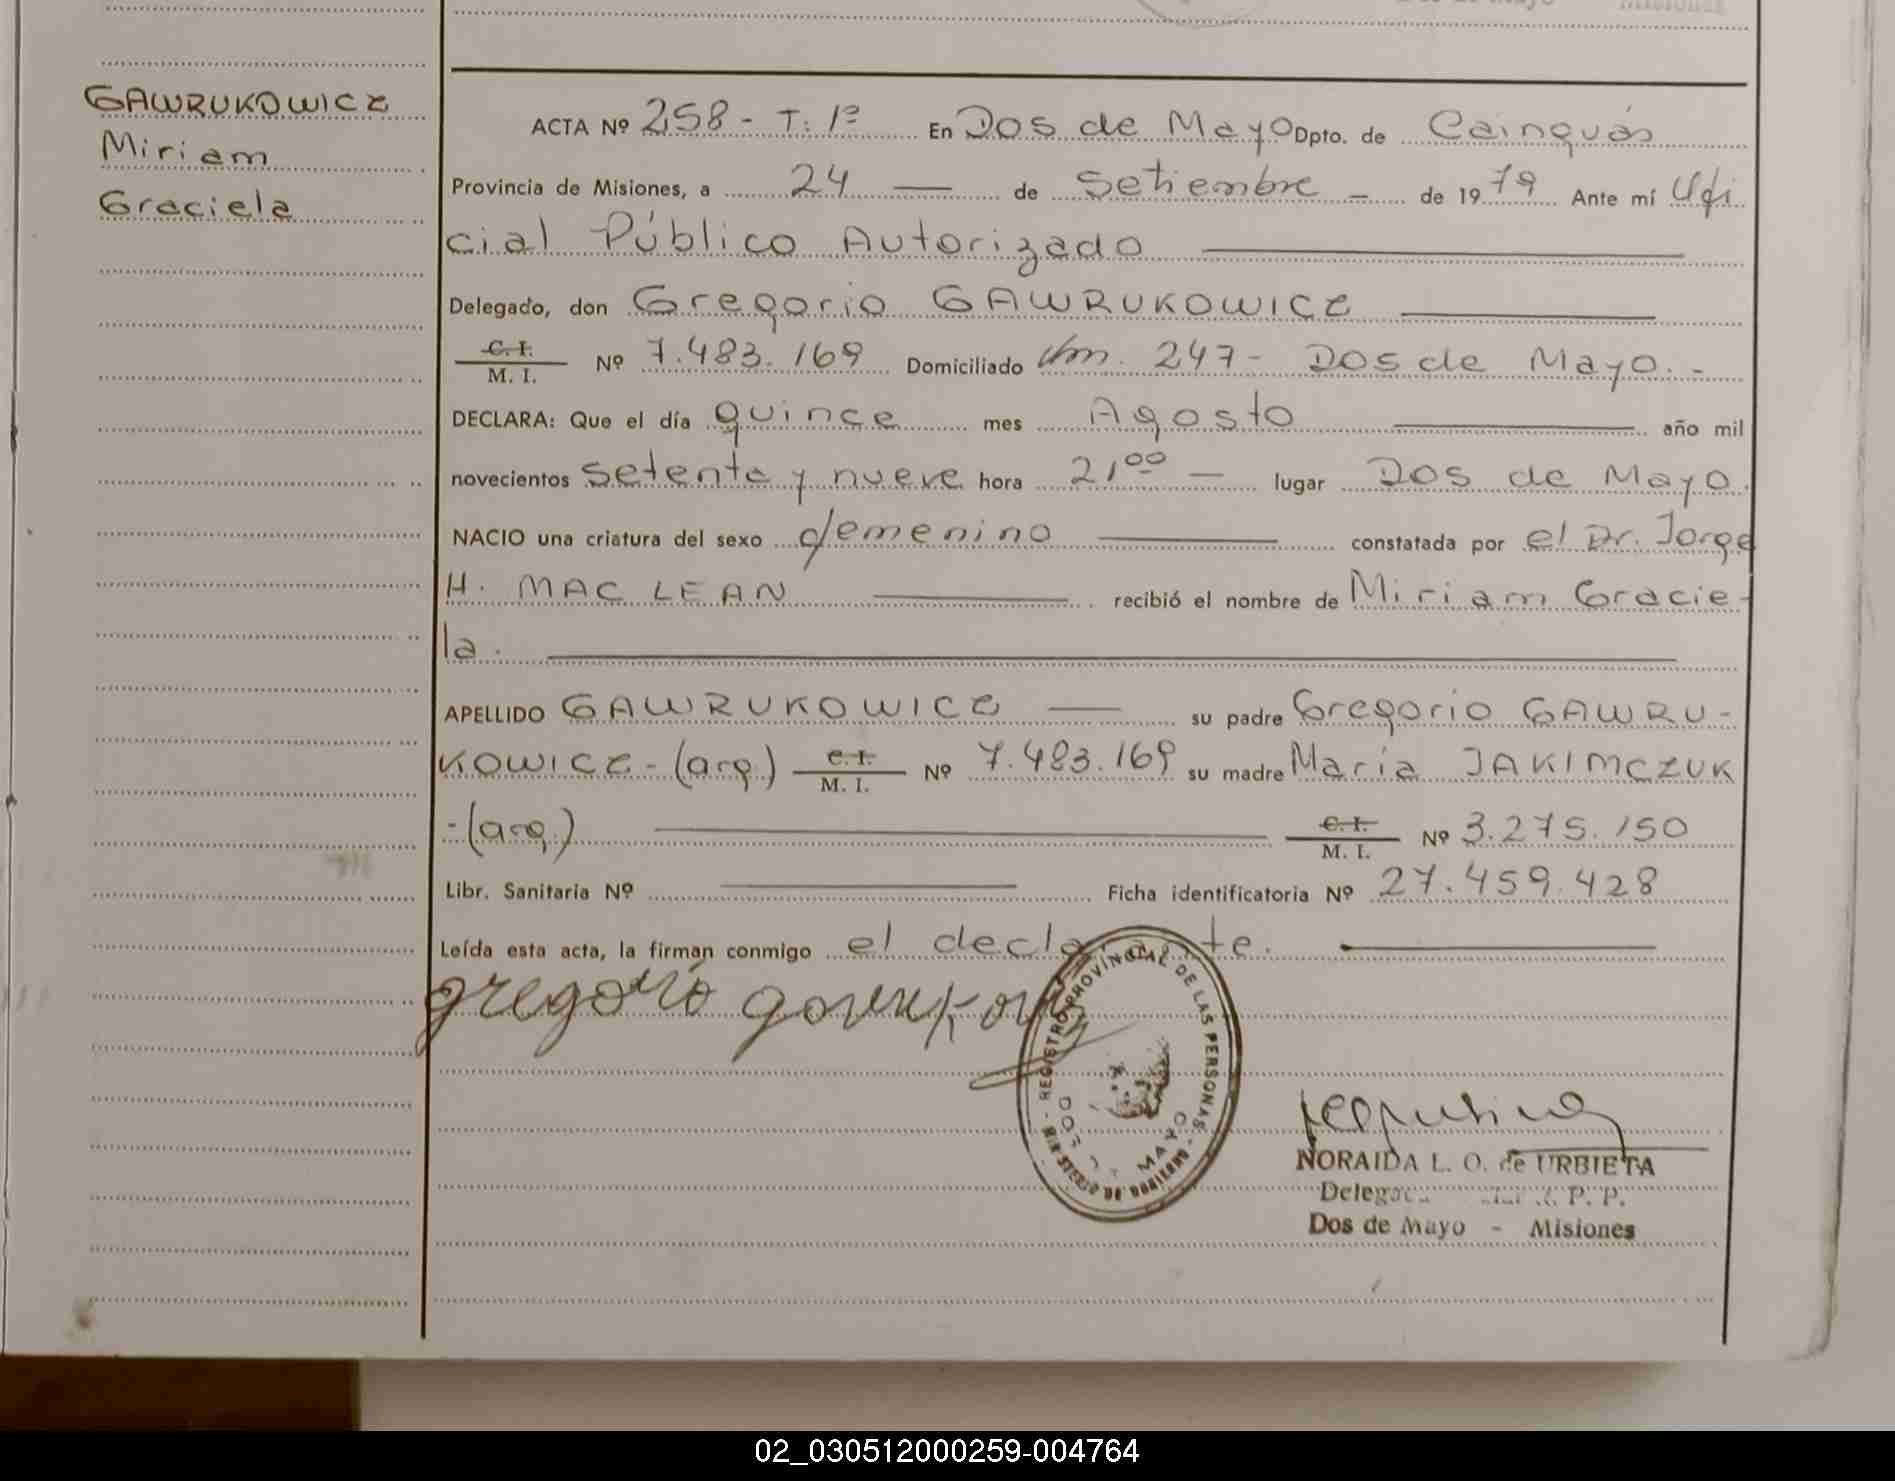 GAWRUKOWICZ
Miriam
Graciela
ACTA Nº 258 - T: 1º En Dos de Mayo Dpto. de Cainguás
Provincia de Misiones, a 24 — de Setiembre - de 1979 Ante mí Ofi
cial Público Autorizado
Delegado, don Gregorio GAWRUKOWICZ
C. I.
M. I. Nº 7.483.169 Domiciliado Km. 247 - Dos de Mayo. -
DECLARA: Que el día quince mes Agosto año mil
novecientos setenta y nueve hora 21,00 — lugar Dos de Mayo.
NACIO una criatura del sexo femenino constatada por el Dr. Jorge
H. MAC LEAN recibió el nombre de Miriam Gracie-
la.
APELLIDO GAWRUKOWICZ — su padre Gregorio GAWRU-
KOWICZ - (arg.) C. I. / M. I. Nº 7.483.169 su madre María JAKIMCZUK
- (arg.) C. I. / M. I. Nº 3.275.150
Libr. Sanitaria Nº — Ficha identificatoria Nº 27.459.428
Leída esta acta, la firman conmigo el declarante.
gregorio
REGISTRO PROVINCIAL DE LAS PERSONAS
MINISTERIO DE GOBIERNO
DOS MAYO
NORAIDA L. O. de URBIETA
P. P.
Dos de Mayo - Misiones
02_030512000259-004764